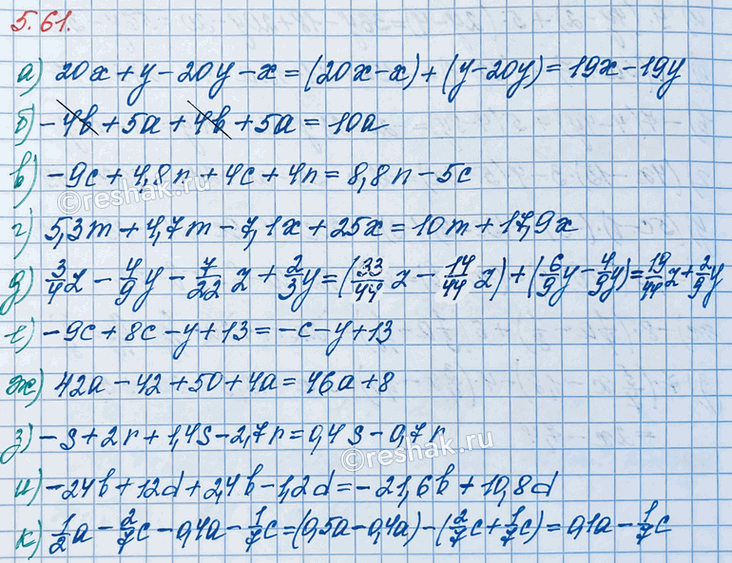 5.61.
а) 20x + y - 20y - x = (20x - x) + (y - 20y) = 19x - 19y
б) -4b + 5a + 4b + 5a = 10a
в) -9c + 4,8n + 4c + 4n = 8,8n - 5c
©reshak.ru
г) 5,3m + 4,7m - 7,1x + 25x = 10m + 17,9x
д) 3/4 z - 4/9 y - 7/22 z + 2/3 y = (33/44 z - 14/44 z) + (6/9 y - 4/9 y) = 19/44 z + 2/9 y
е) -9c + 8c - y + 13 = -c - y + 13
ж) 42a - 42 + 50 + 4a = 46a + 8
з) -s + 2r + 1,4s - 2,7r = 0,4s - 0,7r
©reshak.ru
и) -24b + 12d + 2,4b - 1,2d = -21,6b + 10,8d
к) 1/2 a - 2/7 c - 0,4a - 1/7 c = (0,5a - 0,4a) - (2/7 c + 1/7 c) = 0,1a - 1/7 c